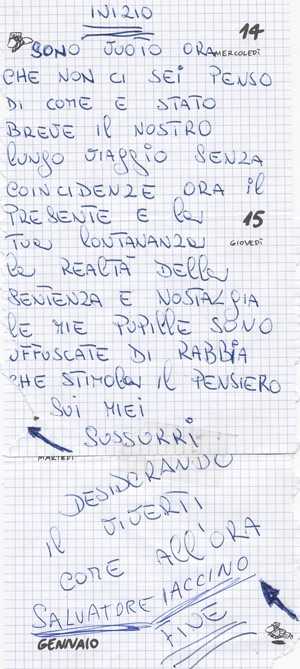 INIZIO
14
SONO VUOTO ORA
MERCOLEDÌ
CHE NON CI SEI PENSO
DI COME E STATO
BREVE il NOSTRO
lUNGO VIAGGIO SENZA
COINCIDENZE ORA il
PRESENTE E la
15
TUA lONTANANZA
GIOVEDÌ
la REALTÀ DElla
SENTENZA E NOSTALGIA
lE MIE PUPILLE SONO
OFFUSCATE DI RABBIA
CHE STIMOla Il PENSIERO
SUI MIEI
SUSSURRI
MARTEDÌ
DESIDERANDO
il VIVERTI
COME All'ORA
SALVATORE IACCINO
FINE
GENNAIO